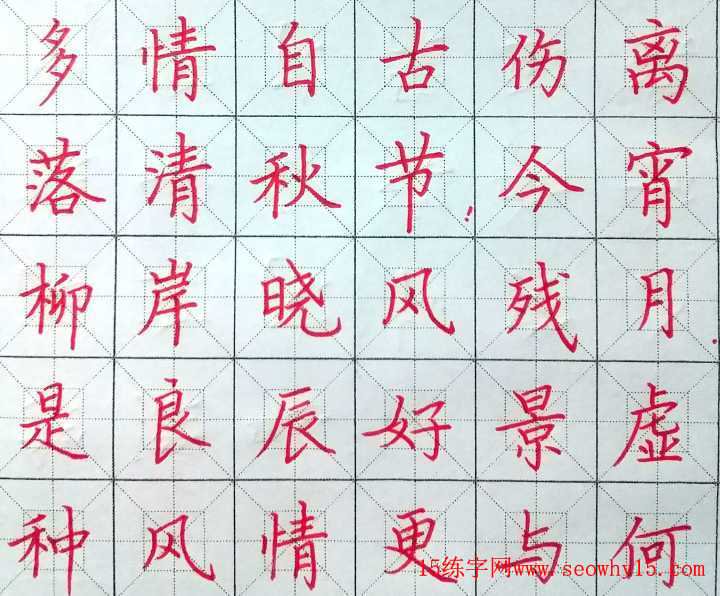 多情自古伤离
落清秋节!今宵
柳岸晓风残月.
是良辰好景虚
种风情更与何
15练字网www.seowhy15.com